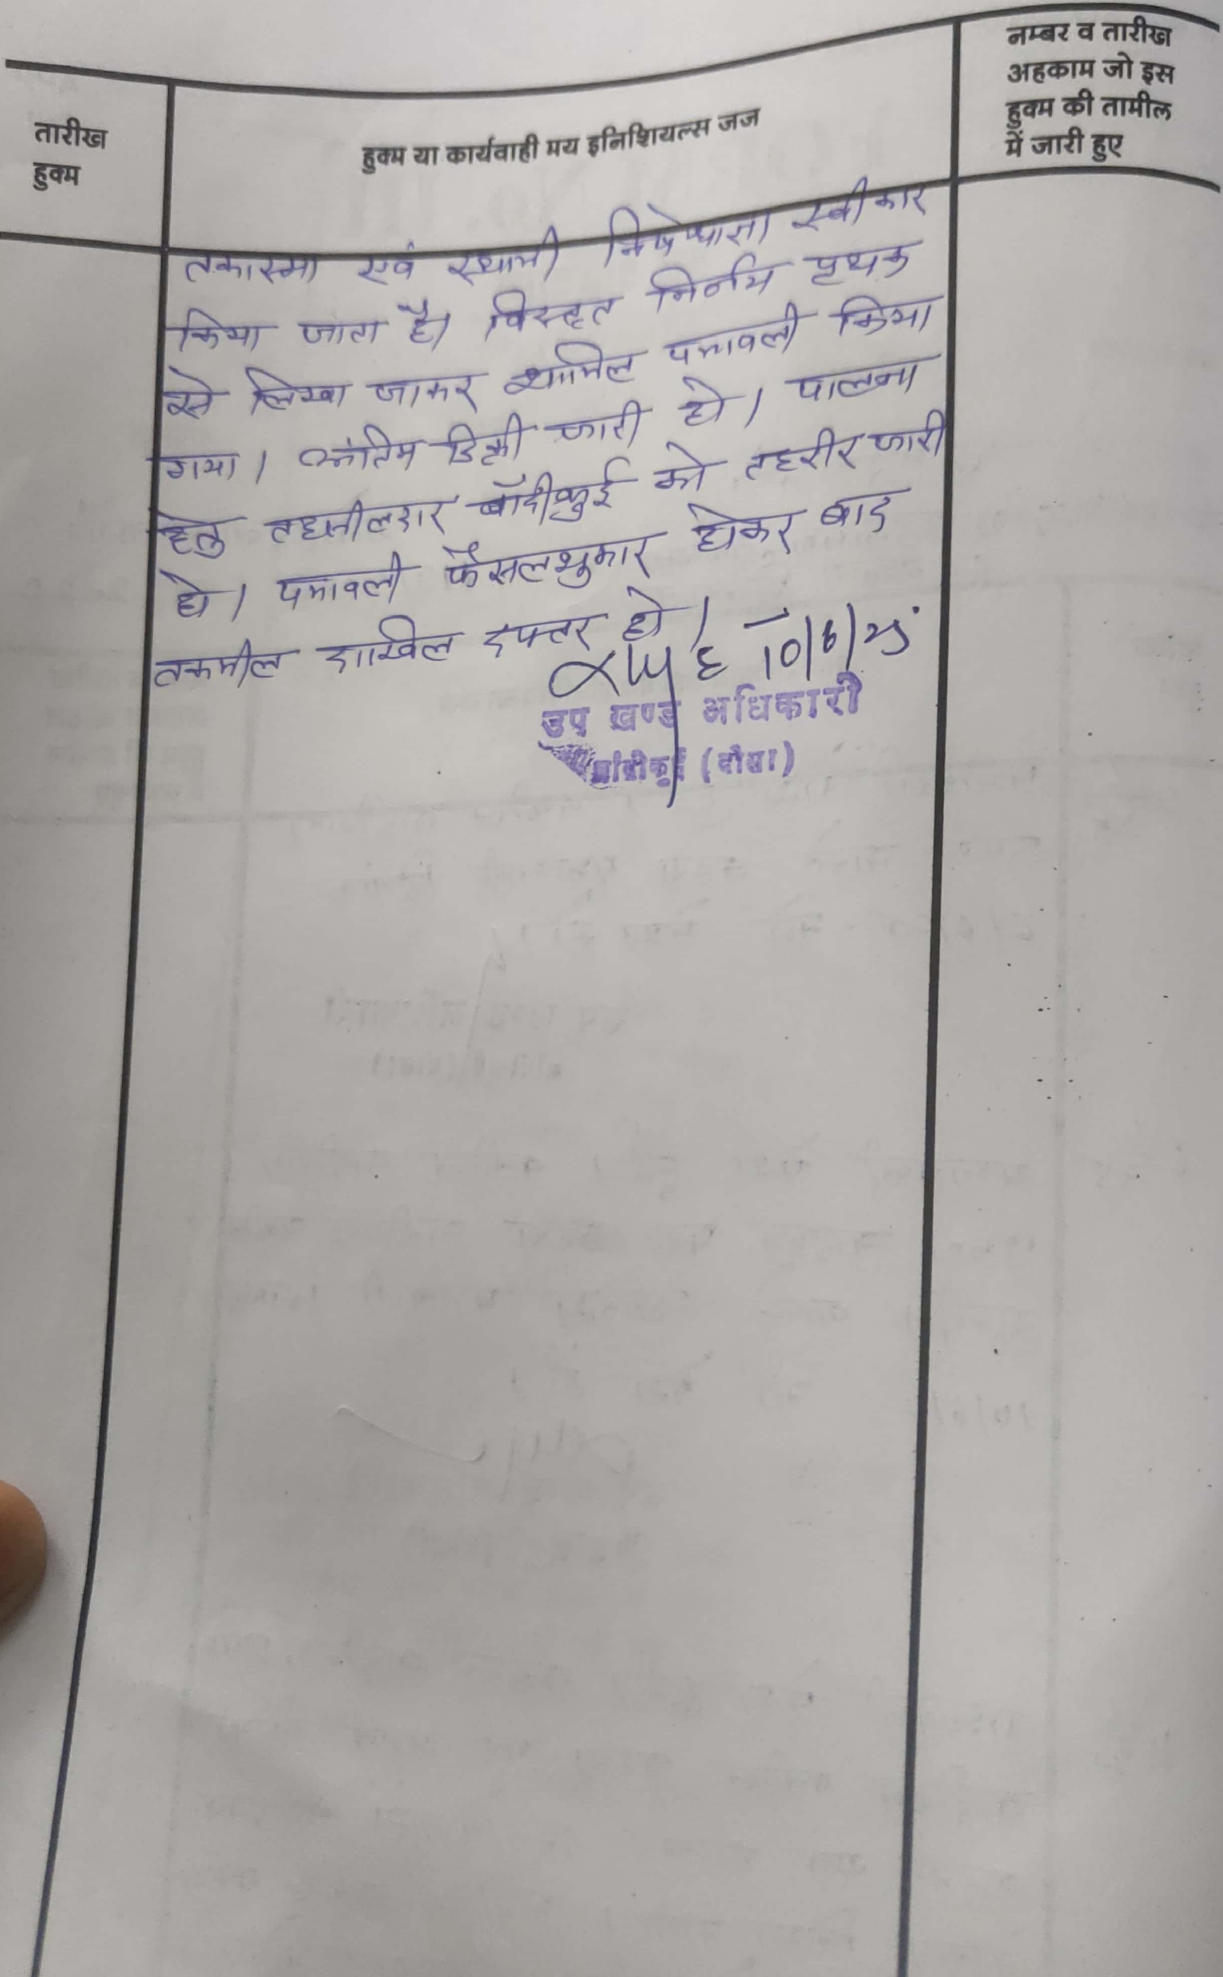 तारीख
हुक्म
हुक्म या कार्यवाही मय इनिशियल्स जज
नम्बर व तारीख
अहकाम जो इस
हुक्म की तामील
में जारी हुए
तकास्मा एवं स्थायी निषेधाज्ञा स्वीकार
किया जाता है। विस्तृत निर्णय पृथक
से लिखा जाकर शामिल पत्रावली किया
गया। अंतिम डिक्री जारी हो। पालना
हेतु तहसीलदार बाँदीकुई को तहरीर जारी
हो। पत्रावली फैसलशुमार होकर बाद
तकमील दाखिल दफ्तर हो।
10/6/25
उप खण्ड अधिकारी
बांदीकुई (दौसा)